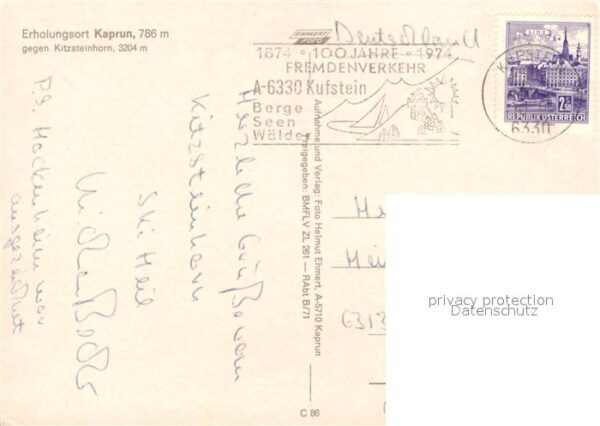 Erholungsort Kaprun, 786 m
gegen Kitzsteinhorn, 3204 m
EHMERT
FOTO
Deutschland
1874 · 100 JAHRE · 1974
FREMDENVERKEHR
A-6330 Kufstein
Berge
Seen
Wälder
KUFSTEIN
6330
LINZ
2.50
REPUBLIK ÖSTERREICH
Herzliche Grüße vom
Kitzsteinhorn
Ski Heil
P.S. Hockenheim war
ausgezeichnet
Aufnahme und Verlag: Foto Helmut Ehmert, A-5710 Kaprun
Freigegeben: BMFLV ZL 261 — RAbt B/71
He
Hei
6313
C 86
privacy protection
Datenschutz